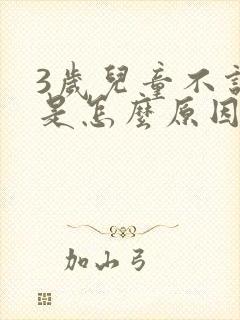 3歲兒童不
是怎麼原因
加山弓